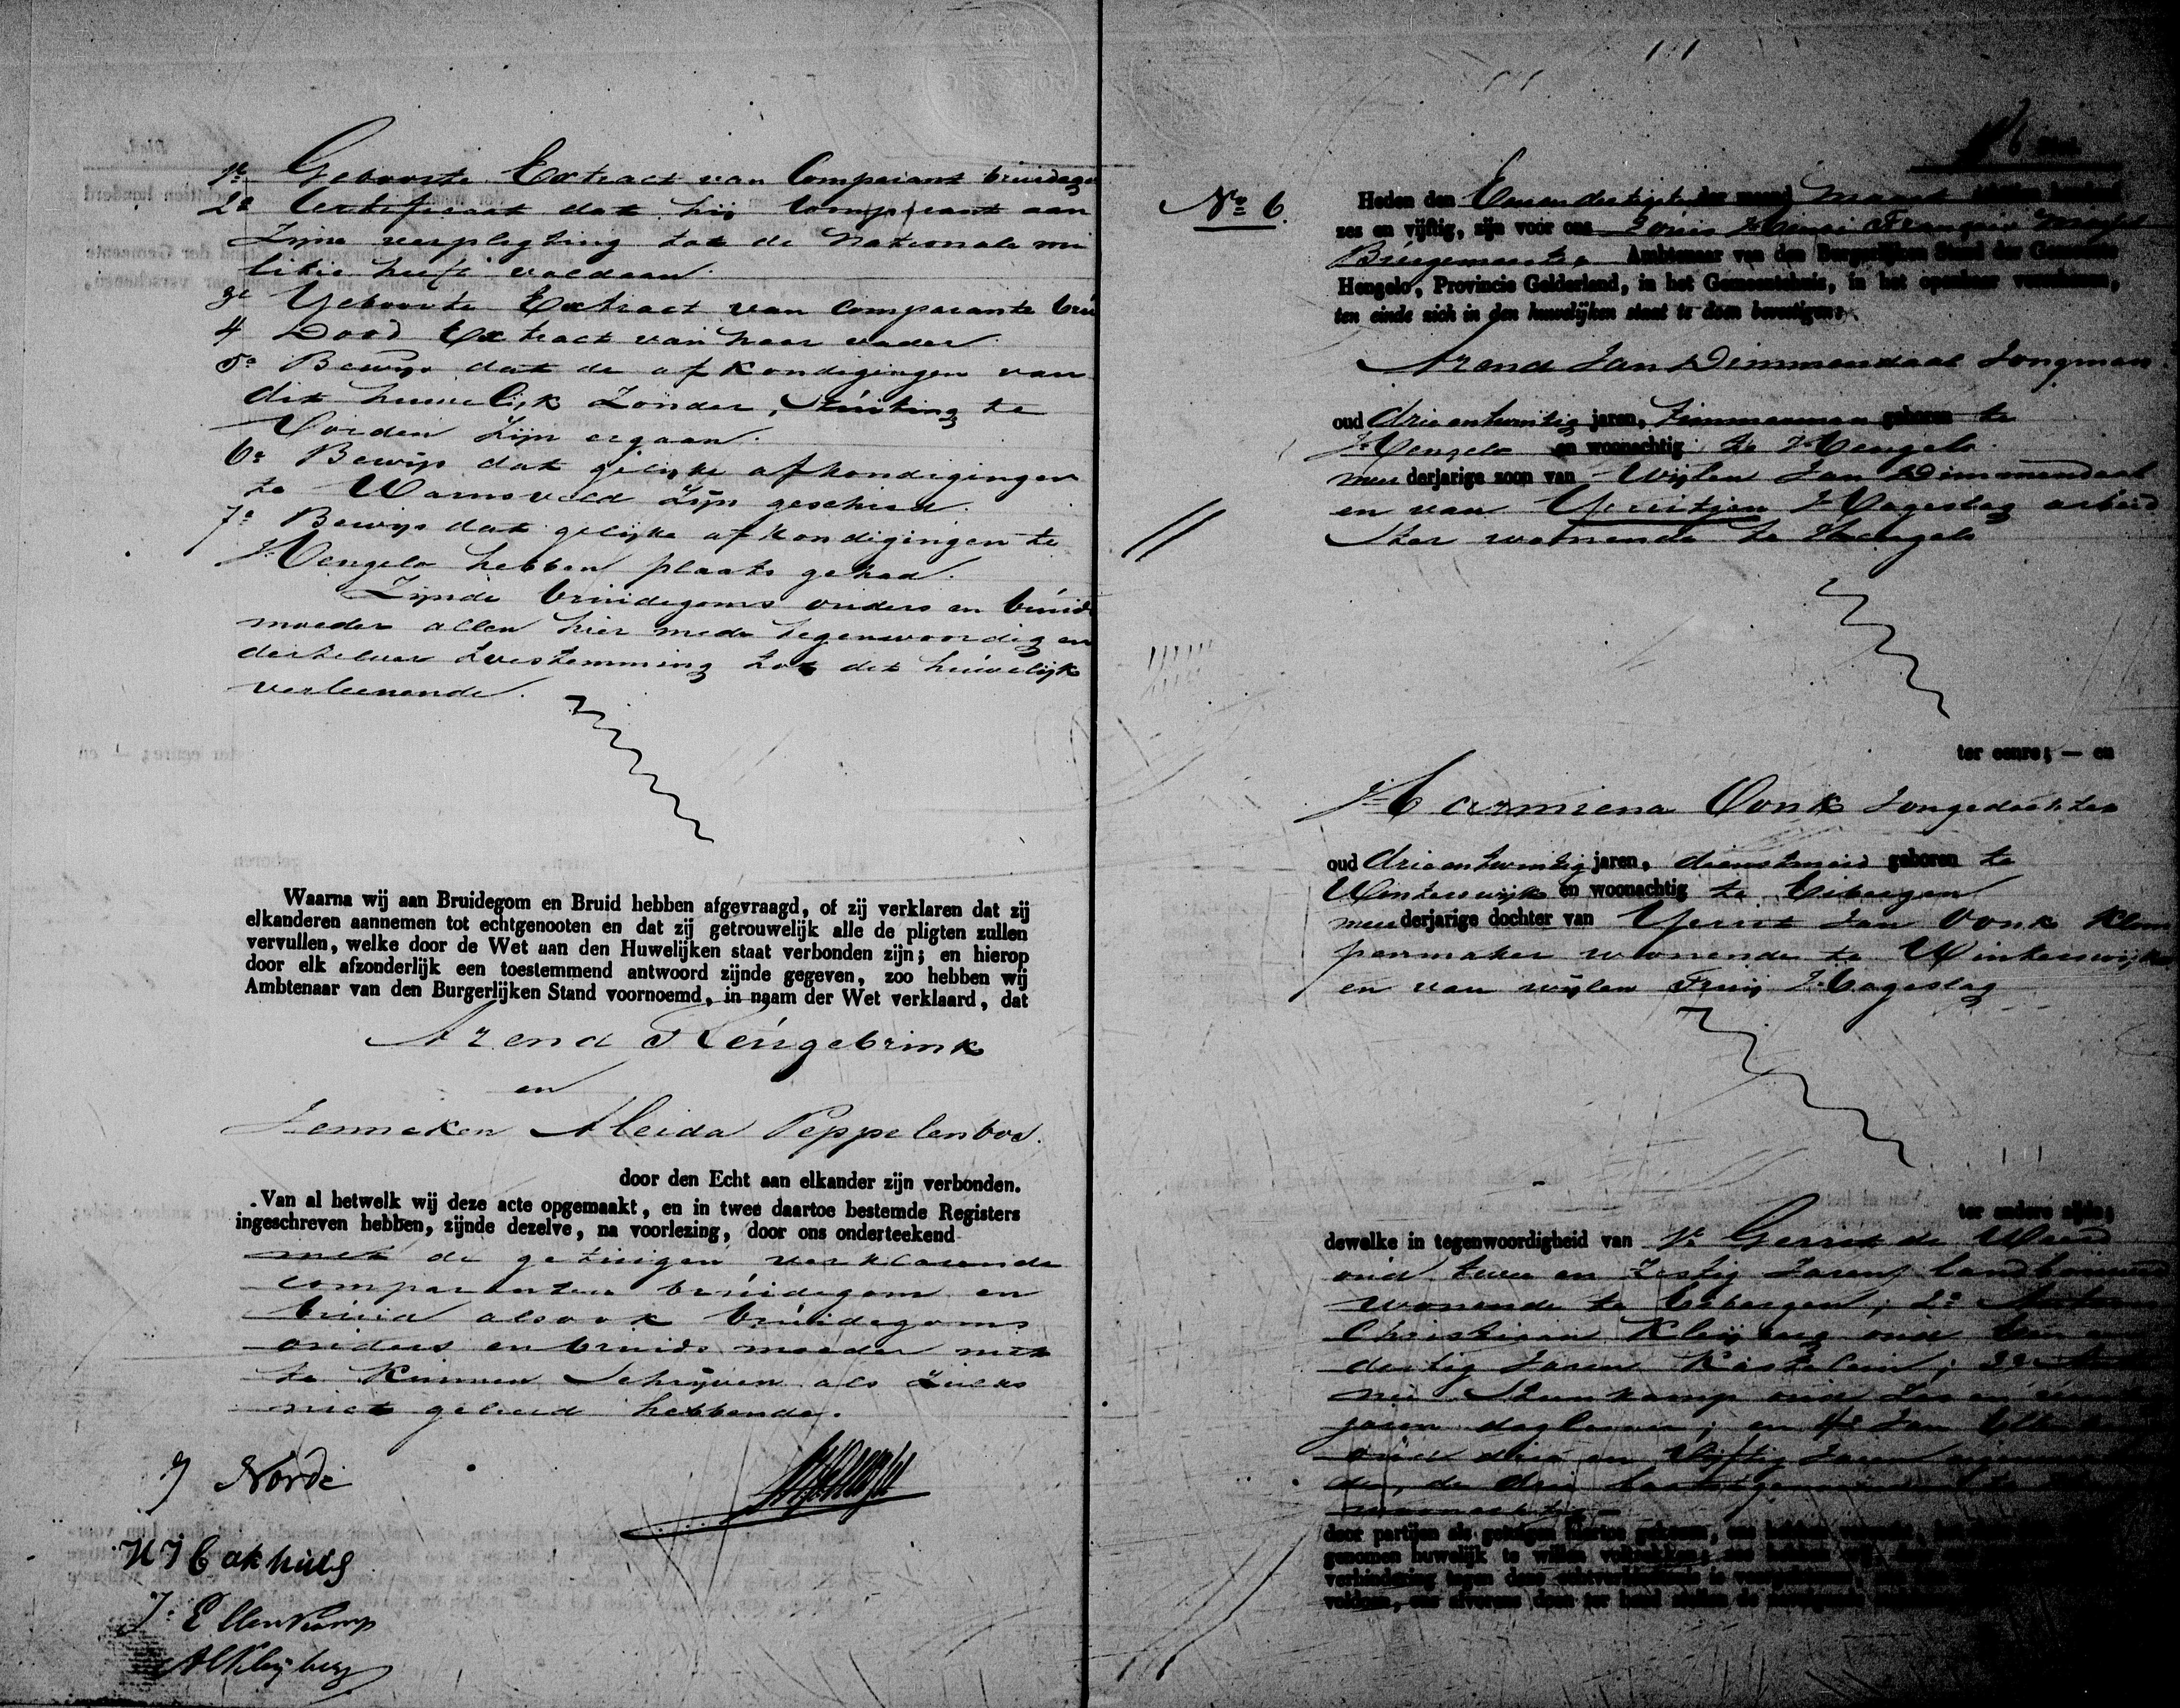 1e Geboorte Extract van Comparant bruidegom
2e Certificaat dat hij Comparant aan
zijne verpligting tot de Nationale mi
litie heeft voldaan.
3e Geboorte Extract van Comparante bru
4 Dood Extract van haar vader
5e Bewijs dat de afkondigingen van
dit huwelijk zonder stuiting te
Vorden zijn ergaan.
6e Bewijs dat gelijke afkondigingen
te Warnsveld zijn geschied.
7e Bewijs dat gelijke afkondigingen te
Hengelo hebben plaats gehad.
Zijnde bruidegoms ouders en bruids
moeder allen hier mede tegenwoordig en
derzelver toestemming tot dit huwelijk
verleenende.
Waarna wij aan Bruidegom en Bruid hebben afgevraagd, of zij verklaren dat zij
elkanderen aannemen tot echtgenooten en dat zij getrouwelijk alle de pligten zullen
vervullen, welke door de Wet aan den Huwelijken staat verbonden zijn; en hierop
door elk afzonderlijk een toestemmend antwoord zijnde gegeven, zoo hebben wij
Ambtenaar van den Burgerlijken Stand voornoemd, in naam der Wet verklaard, dat
Arend Reugebrink
en
Janneken Aleida Peppelenbos.
door den Echt aan elkander zijn verbonden.
Van al hetwelk wij deze acte opgemaakt, en in twee daartoe bestemde Registers
ingeschreven hebben, zijnde dezelve, na voorlezing, door ons onderteekend
met de getuigen verklarende
comparanten bruidegom en
bruid alsook bruidegoms
ouders en bruids moeder niet
te kunnen schrijven als zulks
niet geleerd hebbende.
J Norde
J: Ellenkamp
AC Kleyberg
No 6.
6 Blad.
Heden den Eenendertigsten der maand Maart achttien honderd
zes en vijftig, zijn voor ons Louis Henri François
Burgemeester Ambtenaar van den Burgerlijken Stand der Gemeente
Hengelo, Provincie Gelderland, in het Gemeentehuis, in het openbaar verschenen,
ten einde zich in den huwelijken staat te doen bevestigen:
Arend Jan Dimmendaal Jongman
oud drieentwintig jaren, timmerman geboren te
Hengelo en woonachtig te Hengelo
meerderjarige zoon van Wijlen Jan Dimmendaal
en van Gerritjen Hageslag arbeid
ster wonende te Hengelo
ter eenre; — en
Harmiena Vonk Jongedochter
oud drieentwintig jaren, dienstmeid geboren te
Winterswijk en woonachtig te Eibergen
meerderjarige dochter van Gerrit Jan Vonk Klom
penmaker wonende te Winterswijk
en van wijlen Hageslag
ter andere zijde;
dewelke in tegenwoordigheid van 1e Gerrit de Weerd
oud twee en zestig Jaren, landbouwer
wonende te Eibergen; 2e
Christiaan Kleyberg oud een en
dertig Jaren Kastelein; 3e
Steenkamp oud
jaren daglooner; en 4e Jan Ellenkamp
oud drie en vijftig Jaren
de drie laatstgenoemden te
woonachtig
door partijen als getuigen hiertoe gekozen, ons hebben verzocht,
genomen huwelijk te willen voltrekken;